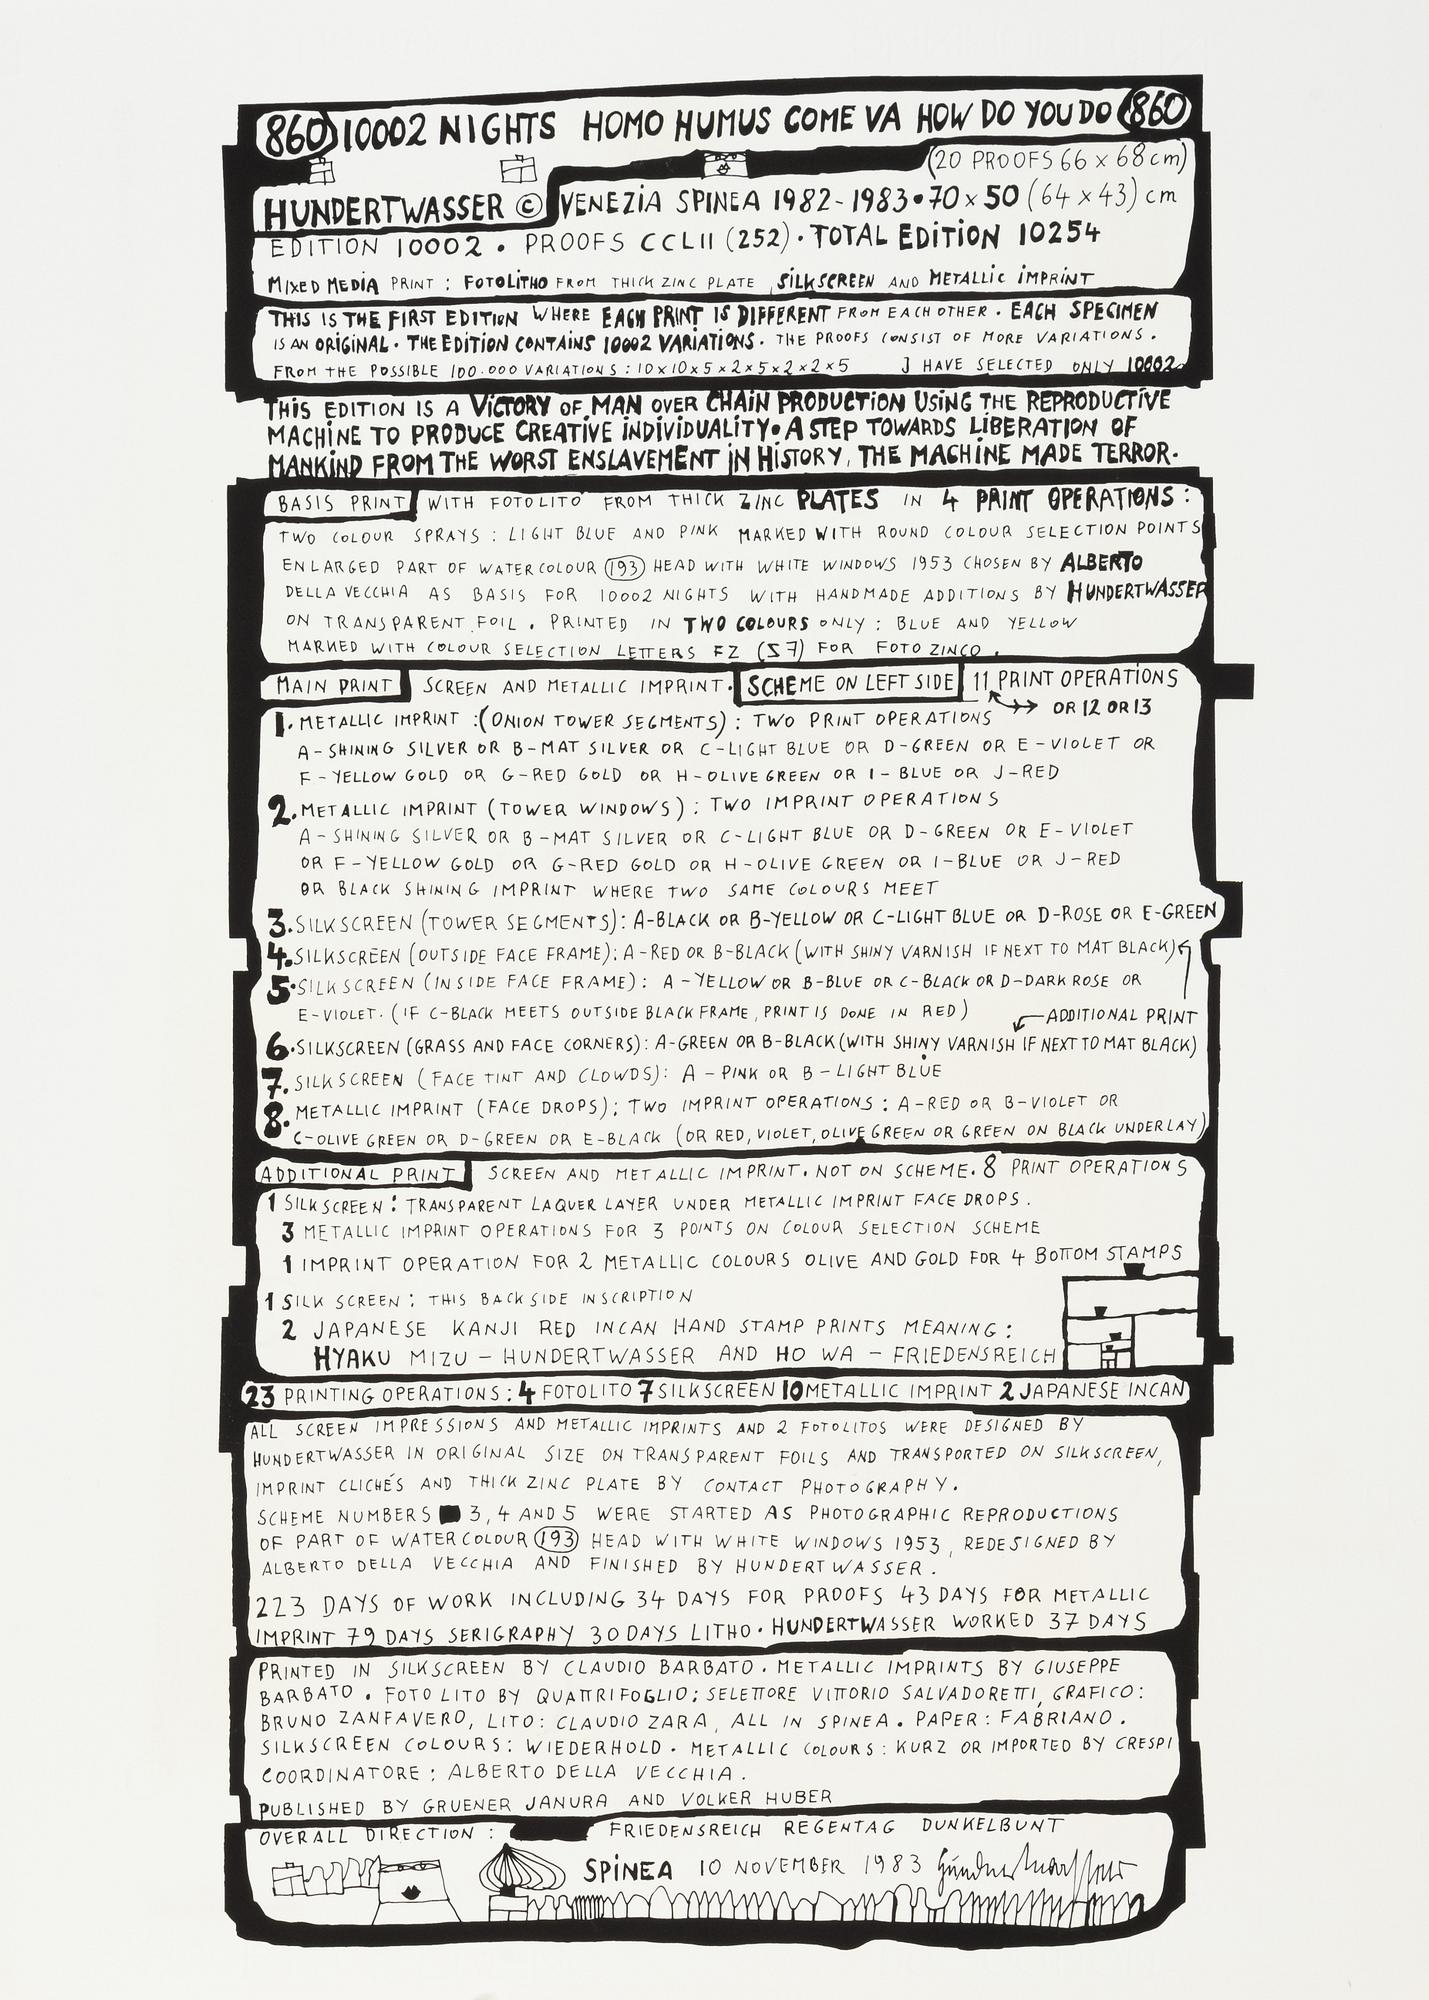 860 10002 NIGHTS HOMO HUMUS COME VA HOW DO YOU DO 860
(20 PROOFS 66 x 68 cm)
HUNDERTWASSER © VENEZIA SPINEA 1982-1983•70x50 (64x43) cm
EDITION 10002 • PROOFS CCLII (252) • TOTAL EDITION 10254
MIXED MEDIA PRINT : FOTOLITHO FROM THICK ZINC PLATE , SILKSCREEN AND METALLIC IMPRINT
THIS IS THE FIRST EDITION WHERE EACH PRINT IS DIFFERENT FROM EACH OTHER • EACH SPECIMEN
IS AN ORIGINAL • THE EDITION CONTAINS 10002 VARIATIONS • THE PROOFS CONSIST OF MORE VARIATIONS .
FROM THE POSSIBLE 100.000 VARIATIONS : 10x10x5x2x5x2x2x5 J HAVE SELECTED ONLY 10002
THIS EDITION IS A VICTORY OF MAN OVER CHAIN PRODUCTION USING THE REPRODUCTIVE
MACHINE TO PRODUCE CREATIVE INDIVIDUALITY• A STEP TOWARDS LIBERATION OF
MANKIND FROM THE WORST ENSLAVEMENT IN HISTORY, THE MACHINE MADE TERROR•
BASIS PRINT WITH FOTOLITO FROM THICK ZINC PLATES IN 4 PRINT OPERATIONS :
TWO COLOUR SPRAYS : LIGHT BLUE AND PINK MARKED WITH ROUND COLOUR SELECTION POINTS
ENLARGED PART OF WATERCOLOUR 193 HEAD WITH WHITE WINDOWS 1953 CHOSEN BY ALBERTO
DELLA VECCHIA AS BASIS FOR 10002 NIGHTS WITH HANDMADE ADDITIONS BY HUNDERTWASSER
ON TRANSPARENT FOIL . PRINTED IN TWO COLOURS ONLY : BLUE AND YELLOW
MARKED WITH COLOUR SELECTION LETTERS FZ (S7) FOR FOTO ZINCO .
MAIN PRINT SCREEN AND METALLIC IMPRINT. SCHEME ON LEFT SIDE 11 PRINT OPERATIONS
OR 12 OR 13
1. METALLIC IMPRINT :(ONION TOWER SEGMENTS) : TWO PRINT OPERATIONS
A-SHINING SILVER OR B-MAT SILVER OR C-LIGHT BLUE OR D-GREEN OR E-VIOLET OR
F-YELLOW GOLD OR G-RED GOLD OR H-OLIVE GREEN OR I-BLUE OR J-RED
2. METALLIC IMPRINT (TOWER WINDOWS) : TWO IMPRINT OPERATIONS
A-SHINING SILVER OR B-MAT SILVER OR C-LIGHT BLUE OR D-GREEN OR E-VIOLET
OR F-YELLOW GOLD OR G-RED GOLD OR H-OLIVE GREEN OR I-BLUE OR J-RED
OR BLACK SHINING IMPRINT WHERE TWO SAME COLOURS MEET
3. SILKSCREEN (TOWER SEGMENTS): A-BLACK OR B-YELLOW OR C-LIGHT BLUE OR D-ROSE OR E-GREEN
4. SILKSCREEN (OUTSIDE FACE FRAME): A-RED OR B-BLACK (WITH SHINY VARNISH IF NEXT TO MAT BLACK)
5. SILKSCREEN (INSIDE FACE FRAME): A-YELLOW OR B-BLUE OR C-BLACK OR D-DARK ROSE OR
E-VIOLET. (IF C-BLACK MEETS OUTSIDE BLACK FRAME, PRINT IS DONE IN RED) ADDITIONAL PRINT
6. SILKSCREEN (GRASS AND FACE CORNERS): A-GREEN OR B-BLACK (WITH SHINY VARNISH IF NEXT TO MAT BLACK)
7. SILKSCREEN (FACE TINT AND CLOWDS): A-PINK OR B-LIGHT BLUE
8. METALLIC IMPRINT (FACE DROPS); TWO IMPRINT OPERATIONS : A-RED OR B-VIOLET OR
C-OLIVE GREEN OR D-GREEN OR E-BLACK (OR RED, VIOLET, OLIVE GREEN OR GREEN ON BLACK UNDERLAY)
ADDITIONAL PRINT SCREEN AND METALLIC IMPRINT. NOT ON SCHEME. 8 PRINT OPERATIONS
1 SILKSCREEN : TRANSPARENT LAQUER LAYER UNDER METALLIC IMPRINT FACE DROPS .
3 METALLIC IMPRINT OPERATIONS FOR 3 POINTS ON COLOUR SELECTION SCHEME
1 IMPRINT OPERATION FOR 2 METALLIC COLOURS OLIVE AND GOLD FOR 4 BOTTOM STAMPS
1 SILK SCREEN : THIS BACKSIDE INSCRIPTION
2 JAPANESE KANJI RED INCAN HAND STAMP PRINTS MEANING :
HYAKU MIZU - HUNDERTWASSER AND HO WA - FRIEDENSREICH
23 PRINTING OPERATIONS : 4 FOTOLITO 7 SILKSCREEN 10 METALLIC IMPRINT 2 JAPANESE INCAN
ALL SCREEN IMPRESSIONS AND METALLIC IMPRINTS AND 2 FOTOLITOS WERE DESIGNED BY
HUNDERTWASSER IN ORIGINAL SIZE ON TRANSPARENT FOILS AND TRANSPORTED ON SILKSCREEN,
IMPRINT CLICHÉS AND THICK ZINC PLATE BY CONTACT PHOTOGRAPHY .
SCHEME NUMBERS 3, 4 AND 5 WERE STARTED AS PHOTOGRAPHIC REPRODUCTIONS
OF PART OF WATERCOLOUR 193 HEAD WITH WHITE WINDOWS 1953, REDESIGNED BY
ALBERTO DELLA VECCHIA AND FINISHED BY HUNDERTWASSER .
223 DAYS OF WORK INCLUDING 34 DAYS FOR PROOFS 43 DAYS FOR METALLIC
IMPRINT 79 DAYS SERIGRAPHY 30 DAYS LITHO • HUNDERTWASSER WORKED 37 DAYS
PRINTED IN SILKSCREEN BY CLAUDIO BARBATO . METALLIC IMPRINTS BY GIUSEPPE
BARBATO . FOTO LITO BY QUATTRIFOGLIO; SELETTORE VITTORIO SALVADORETTI, GRAFICO:
BRUNO ZANFAVERO, LITO: CLAUDIO ZARA, ALL IN SPINEA . PAPER : FABRIANO .
SILKSCREEN COLOURS : WIEDERHOLD . METALLIC COLOURS : KURZ OR IMPORTED BY CRESPI
COORDINATORE : ALBERTO DELLA VECCHIA .
PUBLISHED BY GRUENER JANURA AND VOLKER HUBER
OVERALL DIRECTION : FRIEDENSREICH REGENTAG DUNKELBUNT
SPINEA 10 NOVEMBER 1983 Hundertwasser